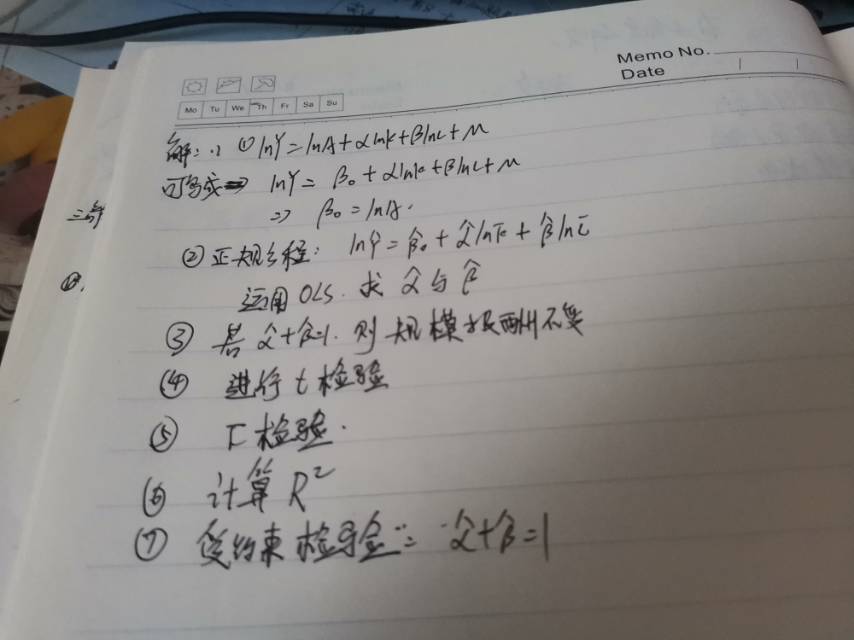 Memo No.
Date
Mo Tu We Th Fr Sa Su
解: (1) ① lnY = lnA + αlnk + βlnL + μ
可写成 => lnY = β₀ + αlnk + βlnL + μ
=> β₀ = lnA.
② 正规方程: lnŶ = β̂₀ + α̂lnk̄ + β̂lnL̄
运用 OLS. 求 α̂ 与 β̂
③ 若 α̂+β̂=1. 则规模报酬不变
④ 进行 t 检验
⑤ F 检验.
⑥ 计算 R²
⑦ 受约束检验: α̂+β̂=1